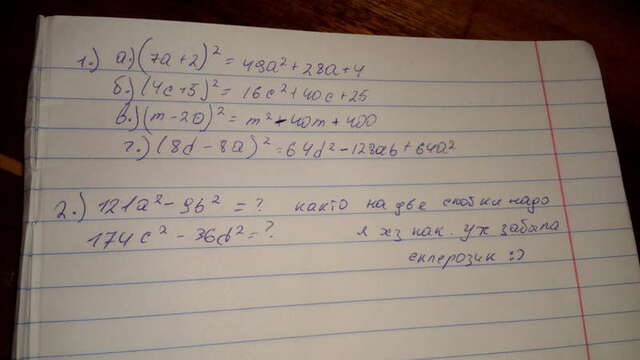 1.) а.) (7a+2)² = 49a²+28a+4
б.) (4c+5)² = 16c²+40c+25
в.) (m-20)² = m²-40m+400
г.) (8d-8a)² = 64d²-128ab+64a²
2.) 121a²-9b² = ? както на две скобки надо
174c²-36d² = ? я хз как. уж забыла
склерозик :)